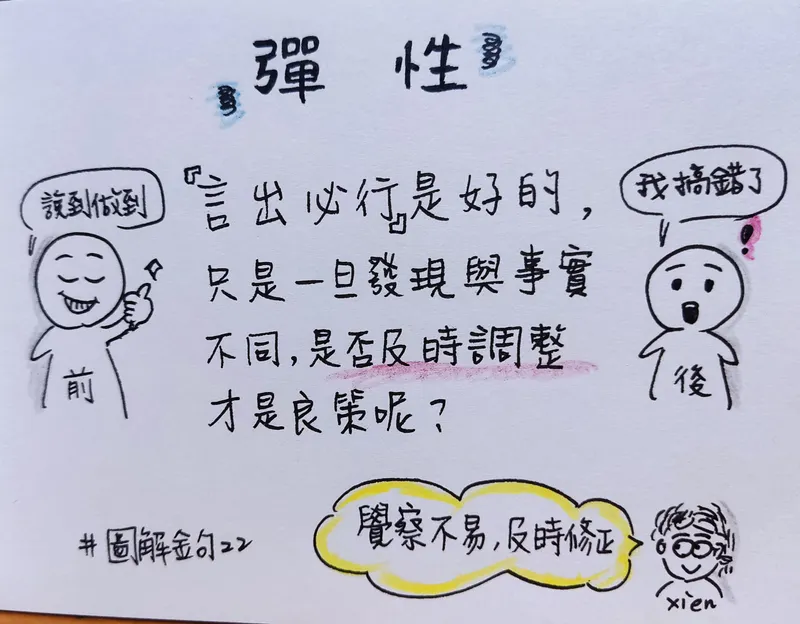 彈性
說到做到
前
『言出必行』是好的，
只是一旦發現與事實
不同，是否及時調整
才是良策呢？
我搞錯了
後
#圖解金句22
覺察不易，及時修正
xien